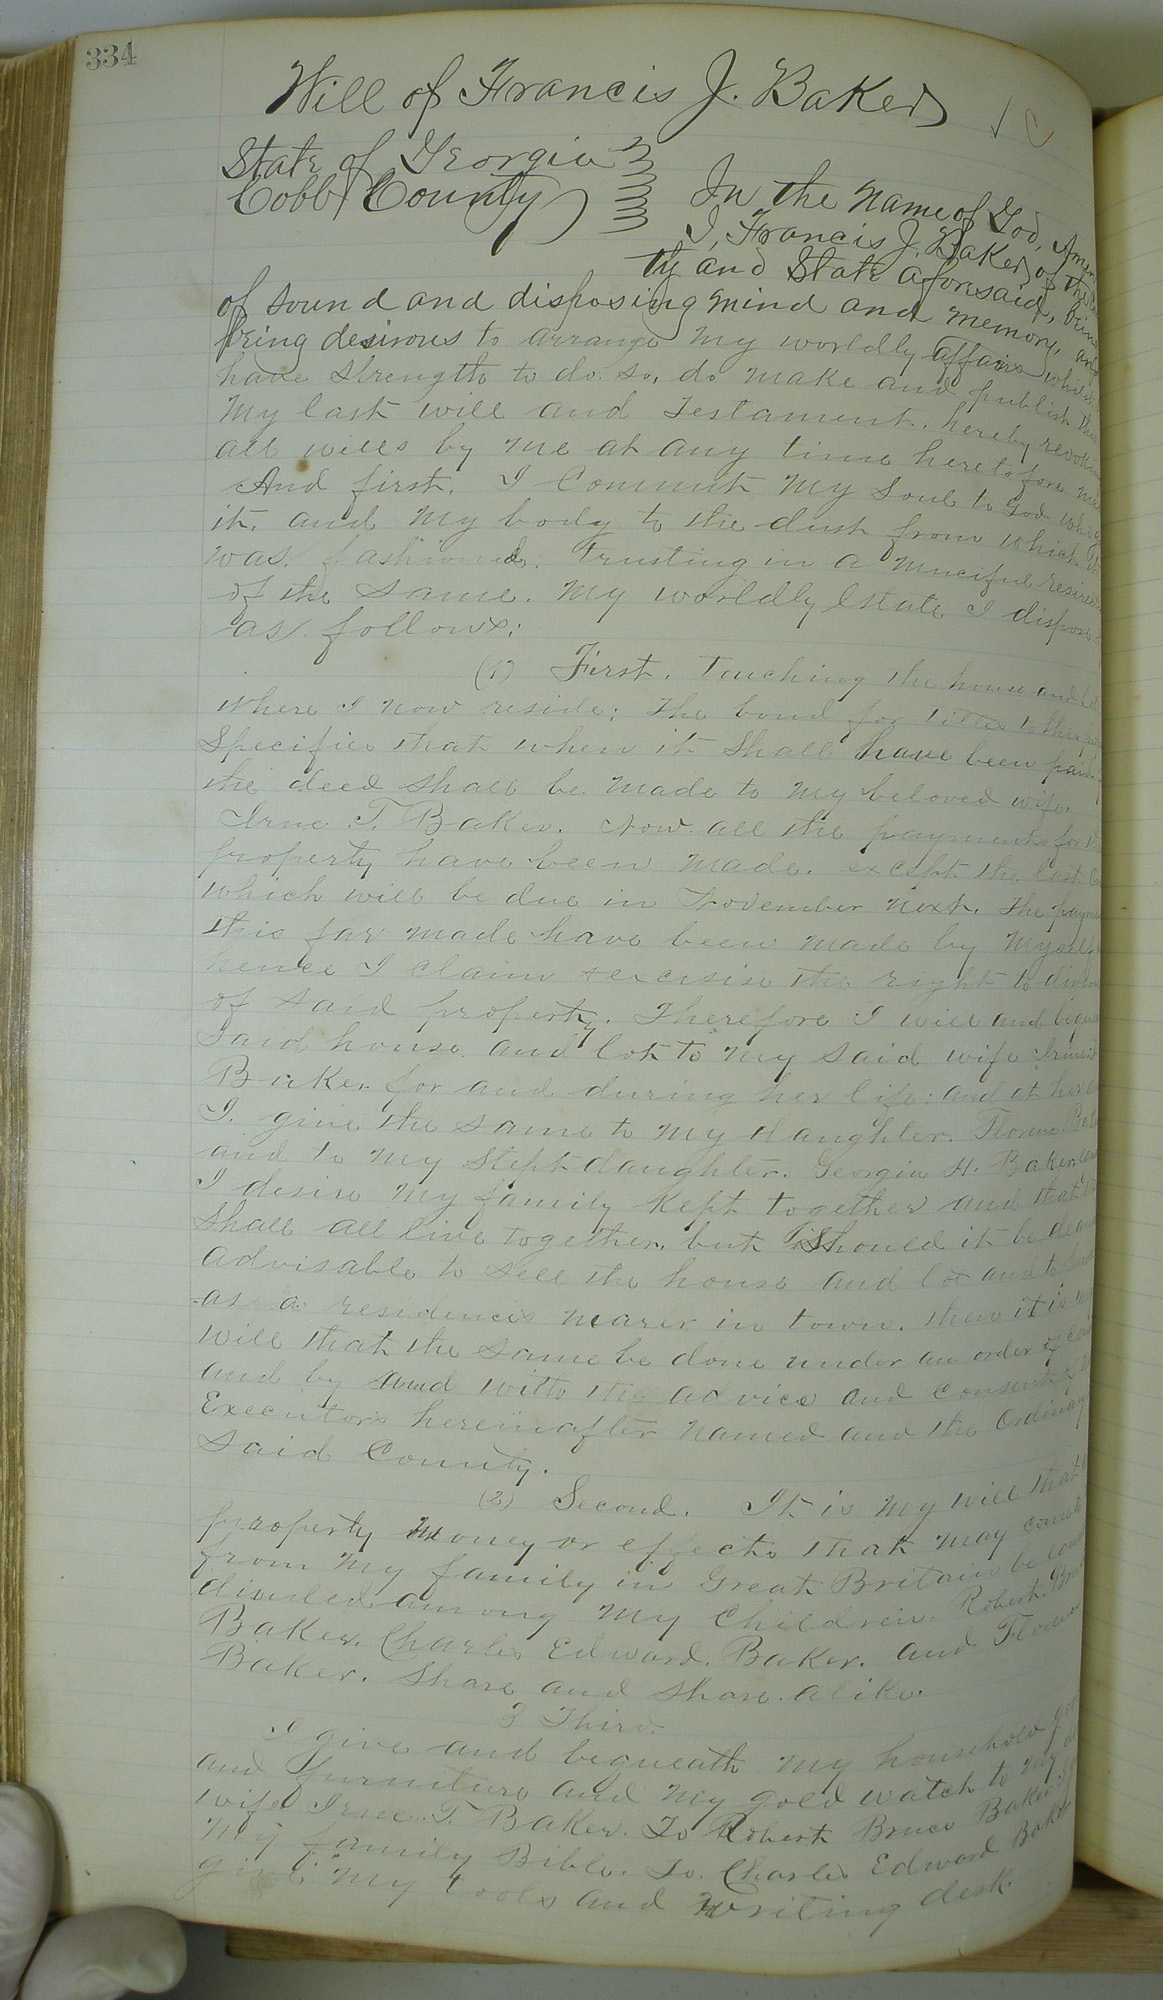 334
Will of Francis J. Baker
State of Georgia
Cobb County
In the name of God, Amen
I, Francis J. Baker of the
ty and State aforesaid, being
of sound and disposing mind and memory, and
being desirous to arrange my worldly affairs whilst
have strength to do so, do make and publish this
my last will and Testament, hereby revoking
all wills by me at any time heretofore
And first. I Commit my Soul to God who gave
it, and my body to the dust from which
was fashioned, trusting in a merciful
of the same. My worldly Estate I dispose
as follows:
(1) First. Touching the house and lot
where I now reside; the bond for titles to this
Specifies that when it shall have been paid
the deed shall be made to my beloved wife
Irene T. Baker. Now all the payments for
property have been made, except the last
which will be due in November next. The
this far made have been made by myself
hence I claim & exercise the right to
of said property. Therefore I will and
said house and lot to my said wife
Baker for and during her life: and at her
I give the same to my daughter. Florence
and to my Stept daughter. Georgia H. Baker.
I desire my family kept together and that
shall all live together, but should it be
advisable to sell the house and lot and to
as a residence nearer in town, then it is
will that the same be done under an order of
and by and with the advice and consent of
Executors hereinafter named and the Ordinary
Said County.
(2) Second. It is my will that
property money or effects that may
from my family in Great Britain be
divided among my Children. Robert
Baker. Charles Edward. Baker. and Florence
Baker. Share and share alike.
3 Third.
I give and bequeath my household
and furniture and my gold watch to my
wife Irene T. Baker. To Robert Bruce Baker
my family Bible. To Charles Edward Baker
give my tools and writing desk.